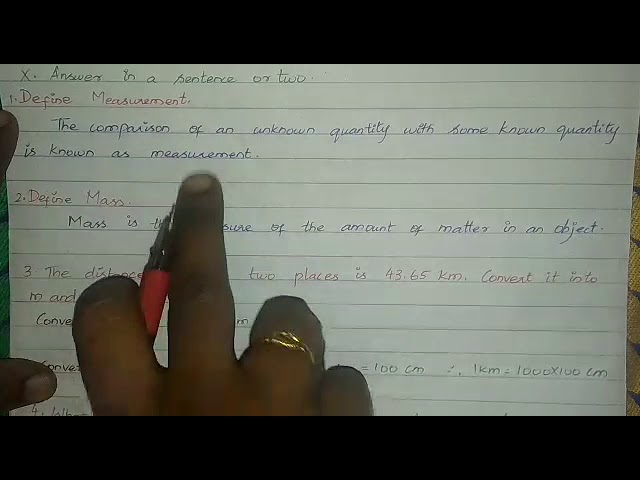 X. Answer in a sentence or two.
1. Define Measurement.
The comparison of an unknown quantity with some known quantity
is known as measurement.
2. Define Mass.
Mass is of the amount of matter in an object.
3 The two places is 43.65 km. Convert it into
m and
m
= 100 cm ∴ 1 km = 1000x100 cm
4.